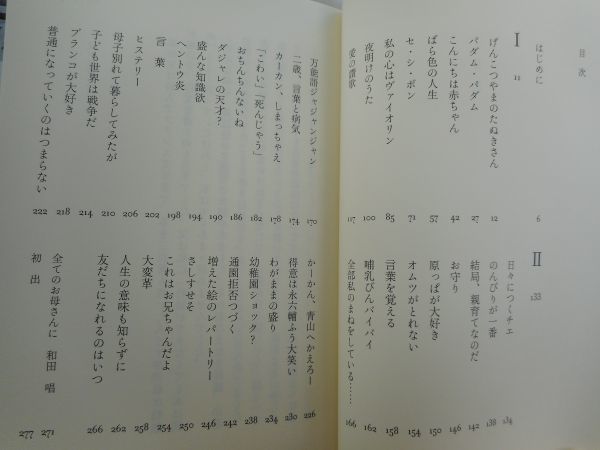 目次
はじめに 6
I 11
げんこつやまのたぬきさん 12
パダム・パダム 27
こんにちは赤ちゃん 42
ばら色の人生 57
セ・シ・ボン 71
私の心はヴァイオリン 85
夜明けのうた 100
愛の讃歌 117
II 133
日々につくチエ 134
のんびりが一番 138
結局、親育てなのだ 142
お守り 146
原っぱが大好き 150
オムツがとれない 154
言葉を覚える 158
哺乳びんバイバイ 162
全部私のまねをしている…… 166
万能語ジャジャンジャン 170
二歳、言葉と病気 174
カーカン、しまっちゃえ 178
「こわい」「死んじゃう」 182
おちんちんないね 186
ダジャレの天才? 190
盛んな知識欲 194
ヘントウ炎 198
言葉 202
ヒステリー 206
母子別れて暮らしてみたが 210
子ども世界は戦争だ 214
ブランコが大好き 218
普通になっていくのはつまらない 222
かーかん、青山へかえろー 226
得意は永六輔ふう大笑い 230
わがままの盛り 234
幼稚園ショック? 238
通園拒否つづく 242
増えた絵のレパートリー 246
さしすせそ 250
これはお兄ちゃんだよ 254
大変革 258
人生の意味も知らずに 262
友だちになれるのはいつ 266
全てのお母さんに 和田 唱 271
初出 277